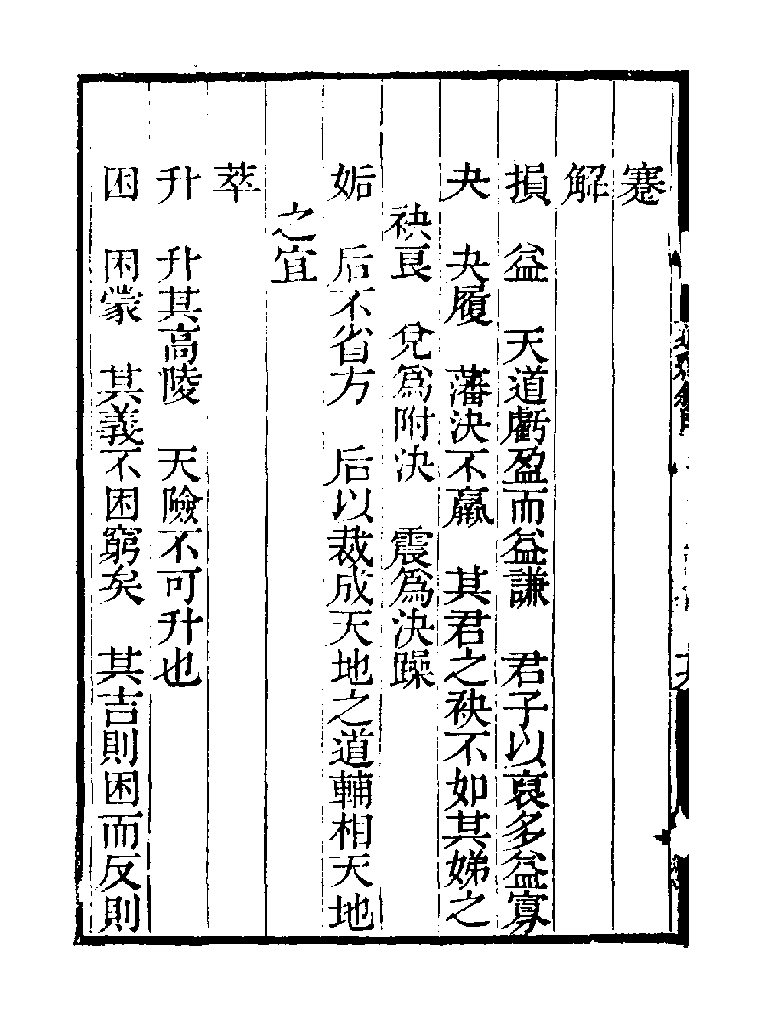 蹇
解
損　益　天道虧盈而益謙　君子以裒多益寡
夬　夬履　藩決不羸　其君之袂不如其娣之
袂良　兌爲附決　震爲決躁
姤　后不省方　后以裁成天地之道輔相天地
之宜
萃
升　升其高陵　天險不可升也
困　困蒙　其義不困窮矣　其吉則困而反則